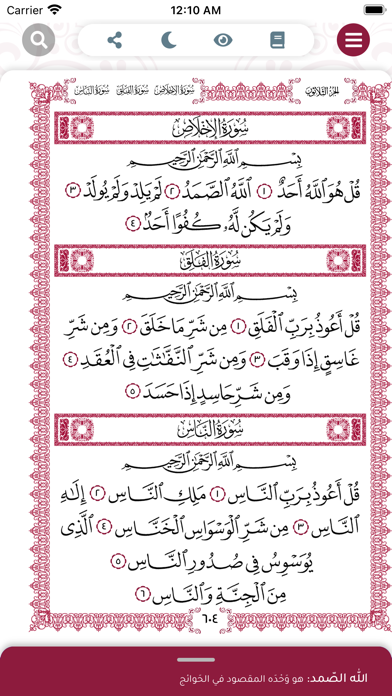 Carrier 12:10 AM
الجزء الثلاثون سورة الإخلاص سورة الفلق سورة الناس
سُورَةُ الإِخْلَاصِ
بِسْمِ اللَّهِ الرَّحْمَٰنِ الرَّحِيمِ
قُلْ هُوَ اللَّهُ أَحَدٌ ١ اللَّهُ الصَّمَدُ ٢ لَمْ يَلِدْ وَلَمْ يُولَدْ ٣
وَلَمْ يَكُن لَّهُ كُفُوًا أَحَدٌ ٤
سُورَةُ الفَلَقِ
بِسْمِ اللَّهِ الرَّحْمَٰنِ الرَّحِيمِ
قُلْ أَعُوذُ بِرَبِّ الْفَلَقِ ١ مِن شَرِّ مَا خَلَقَ ٢ وَمِن شَرِّ
غَاسِقٍ إِذَا وَقَبَ ٣ وَمِن شَرِّ النَّفَّاثَاتِ فِي الْعُقَدِ ٤
وَمِن شَرِّ حَاسِدٍ إِذَا حَسَدَ ٥
سُورَةُ النَّاسِ
بِسْمِ اللَّهِ الرَّحْمَٰنِ الرَّحِيمِ
قُلْ أَعُوذُ بِرَبِّ النَّاسِ ١ مَلِكِ النَّاسِ ٢ إِلَٰهِ
النَّاسِ ٣ مِن شَرِّ الْوَسْوَاسِ الْخَنَّاسِ ٤ الَّذِي
يُوَسْوِسُ فِي صُدُورِ النَّاسِ ٥
مِنَ الْجِنَّةِ وَالنَّاسِ ٦
٦٠٤
الله الصّمد: هو وَحْدَه المقصود في الحَوائج